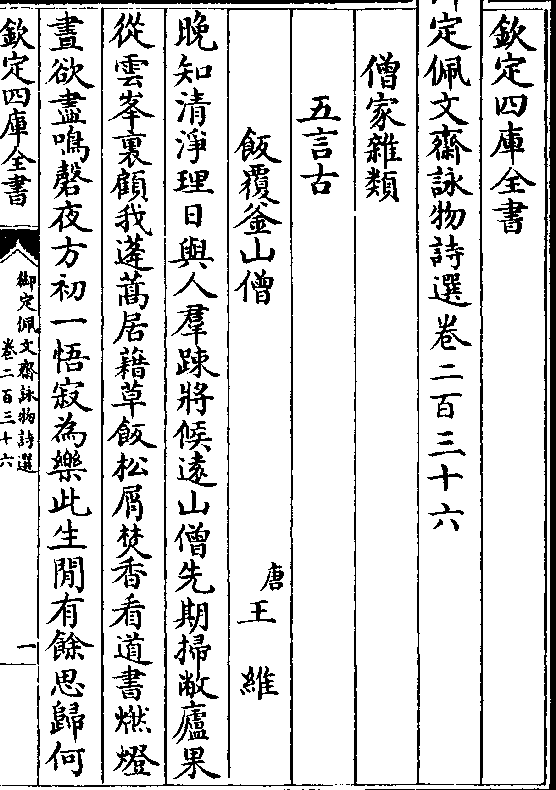 欽定四庫全書
定佩文齋詠物詩選卷二百三十六
僧家雜類
五言古
飯覆釜山僧
唐王維
晚知清淨理日與人羣踈將候遠山僧先期掃敝廬果
從雲峯裏顧我蓬蒿居藉草飯松屑焚香看道書燃燈
晝欲盡鳴磬夜方初一悟寂為樂此生閒有餘思歸何
欽定四庫全書
御定佩文齋詠物詩選
卷二百三十六
一